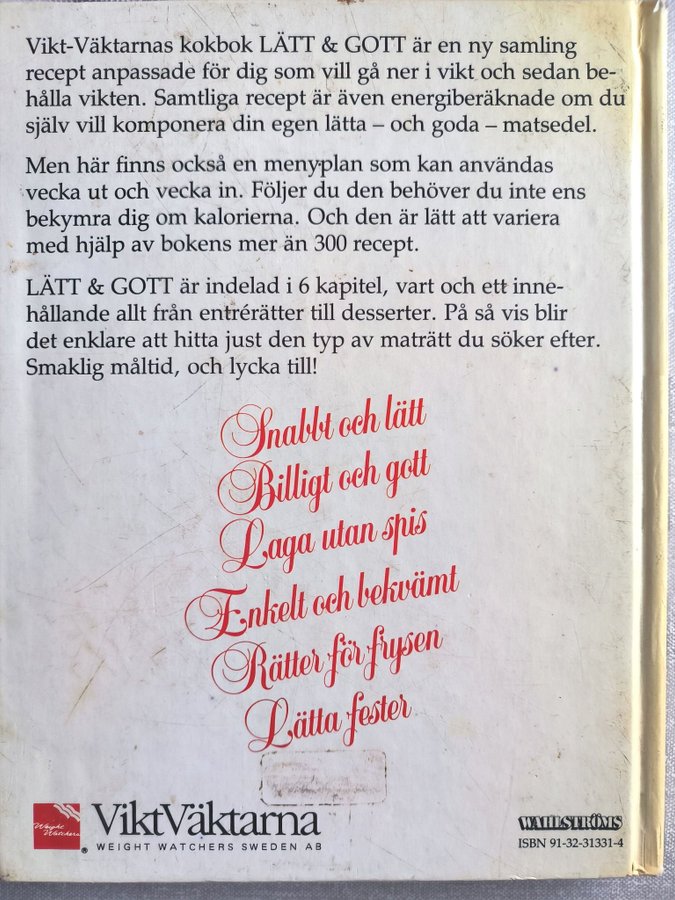 Vikt-Väktarnas kokbok LÄTT & GOTT är en ny samling
recept anpassade för dig som vill gå ner i vikt och sedan be-
hålla vikten. Samtliga recept är även energiberäknade om du
själv vill komponera din egen lätta – och goda – matsedel.
Men här finns också en menyplan som kan användas
vecka ut och vecka in. Följer du den behöver du inte ens
bekymra dig om kalorierna. Och den är lätt att variera
med hjälp av bokens mer än 300 recept.
LÄTT & GOTT är indelad i 6 kapitel, vart och ett inne-
hållande allt från entrérätter till desserter. På så vis blir
det enklare att hitta just den typ av maträtt du söker efter.
Smaklig måltid, och lycka till!
Snabbt och lätt
Billigt och gott
Laga utan spis
Enkelt och bekvämt
Rätter för frysen
Lätta fester
Weight
Watchers
®
ViktVäktarna
WEIGHT WATCHERS SWEDEN AB
WAHLSTRÖMS
ISBN 91-32-31331-4